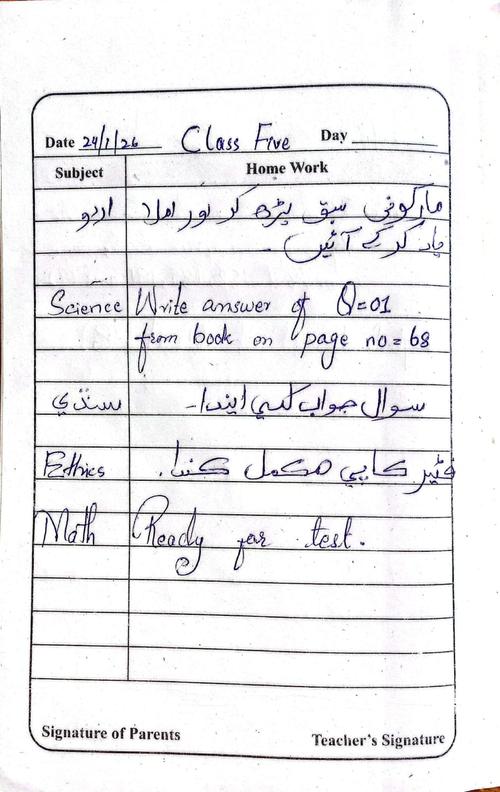 Date 24/1/26 Class Five Day
Subject Home Work
اردو مارکونی سبق پڑھ کر اور املا
یاد کر کے آئیں -
Science Write answer of Q=01
from book on page no = 68
سنڌي سوال جواب لکي ايندا-
Ethics فيئر ڪاپي مڪمل ڪندا.
Math Ready for test.
Signature of Parents Teacher's Signature